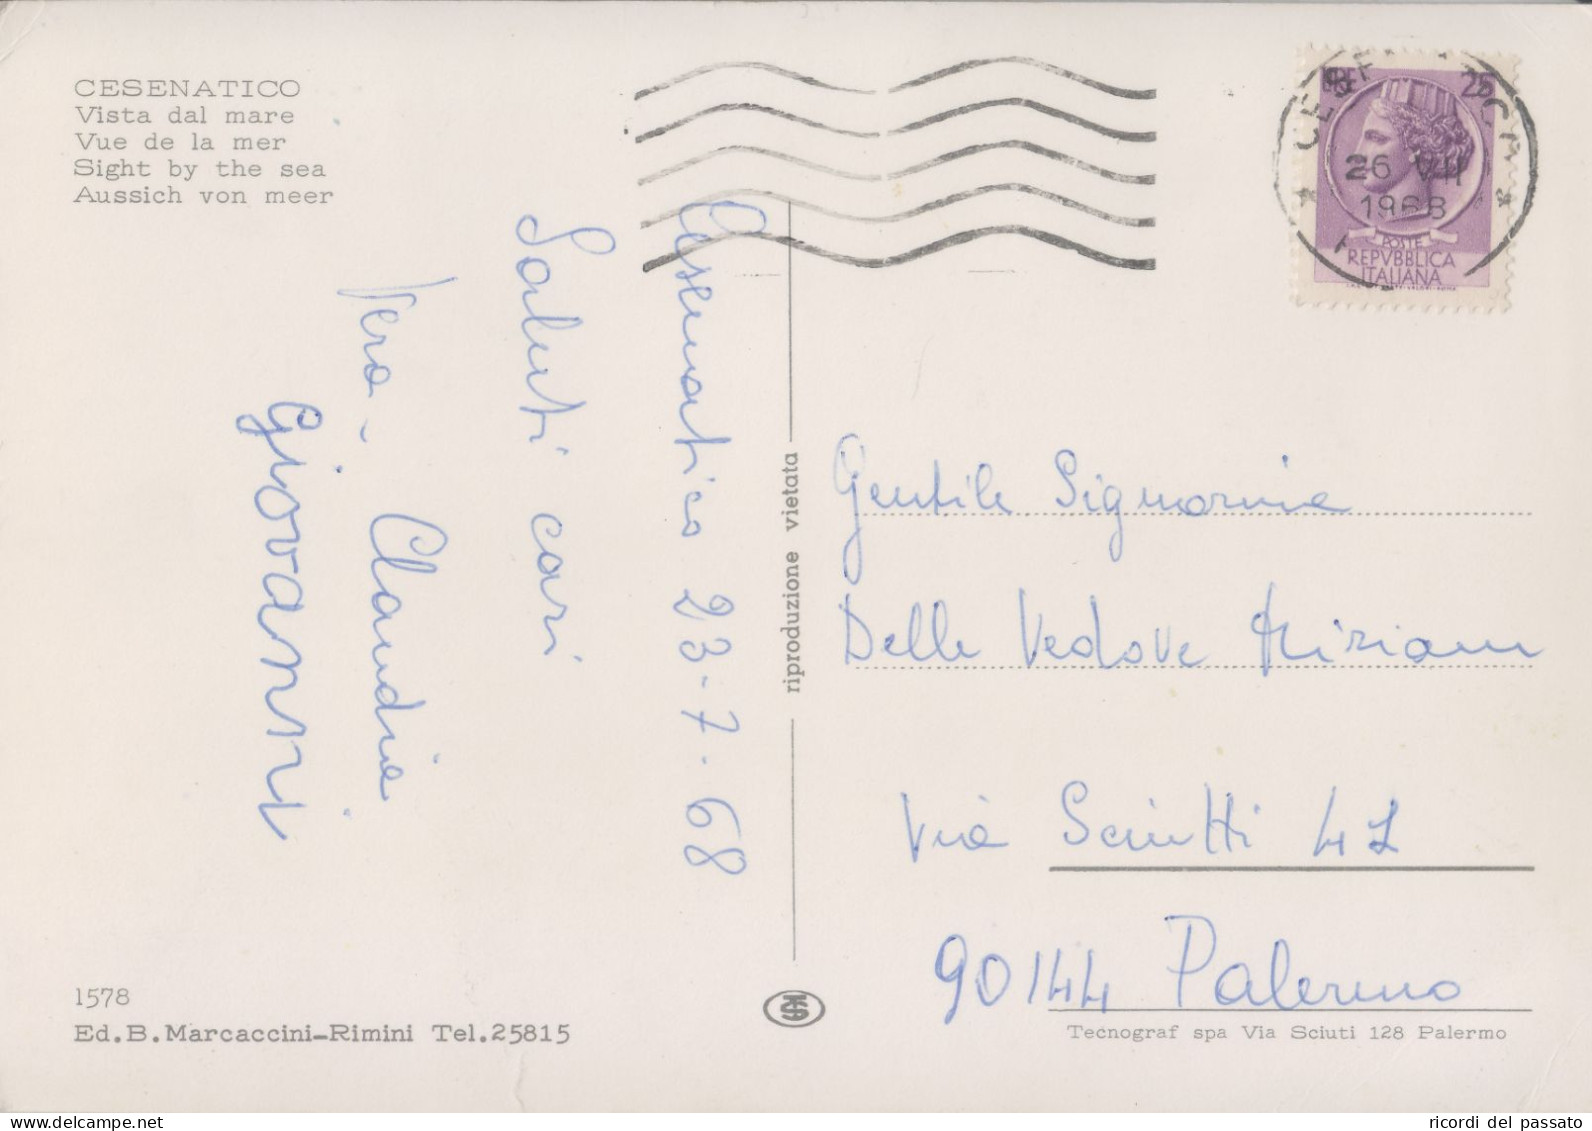 CESENATICO
Vista dal mare
Vue de la mer
Sight by the sea
Aussich von meer
LIRE 25
26 VII
1968
POSTE
REPVBBLICA
ITALIANA
Cesenatico 23-7-68
Saluti cari
Vera - Claudia
Giovanni
riproduzione vietata
Gentile Signorina
Delle Vedove Miriam
Via Sciutti 41
90144 Palermo
1578
Ed.B.Marcaccini-Rimini Tel.25815
Tecnograf spa Via Sciuti 128 Palermo
ricordi del passato